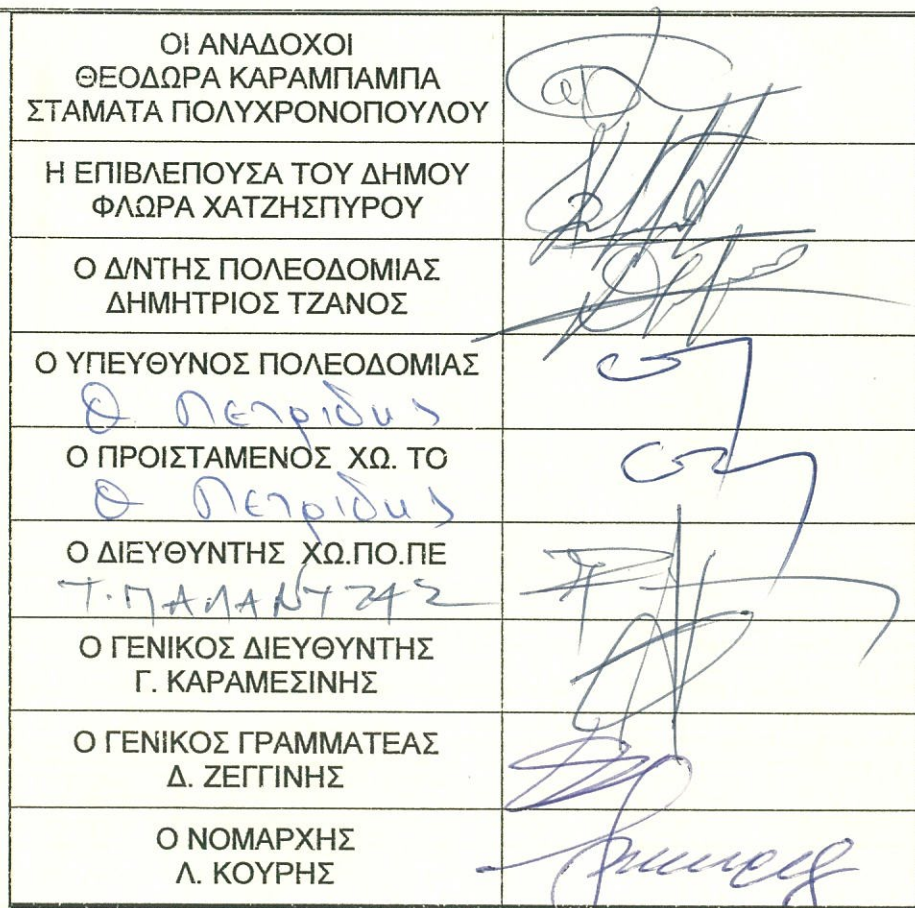 ΟΙ ΑΝΑΔΟΧΟΙ
ΘΕΟΔΩΡΑ ΚΑΡΑΜΠΑΜΠΑ
ΣΤΑΜΑΤΑ ΠΟΛΥΧΡΟΝΟΠΟΥΛΟΥ
Η ΕΠΙΒΛΕΠΟΥΣΑ ΤΟΥ ΔΗΜΟΥ
ΦΛΩΡΑ ΧΑΤΖΗΣΠΥΡΟΥ
Ο Δ/ΝΤΗΣ ΠΟΛΕΟΔΟΜΙΑΣ
ΔΗΜΗΤΡΙΟΣ ΤΖΑΝΟΣ
Ο ΥΠΕΥΘΥΝΟΣ ΠΟΛΕΟΔΟΜΙΑΣ
Θ. Πετρίδης
Ο ΠΡΟΙΣΤΑΜΕΝΟΣ ΧΩ. ΤΟ
Θ Πετρίδης
Ο ΔΙΕΥΘΥΝΤΗΣ ΧΩ.ΠΟ.ΠΕ
Ο ΓΕΝΙΚΟΣ ΔΙΕΥΘΥΝΤΗΣ
Γ. ΚΑΡΑΜΕΣΙΝΗΣ
Ο ΓΕΝΙΚΟΣ ΓΡΑΜΜΑΤΕΑΣ
Δ. ΖΕΓΓΙΝΗΣ
Ο ΝΟΜΑΡΧΗΣ
Λ. ΚΟΥΡΗΣ